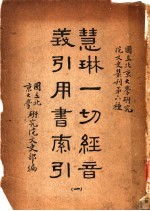 國立北京大學研究
院文史叢刊第六種
慧琳一切經音
義引用書索引
(一)
國立北
京大學 研究院文史部編